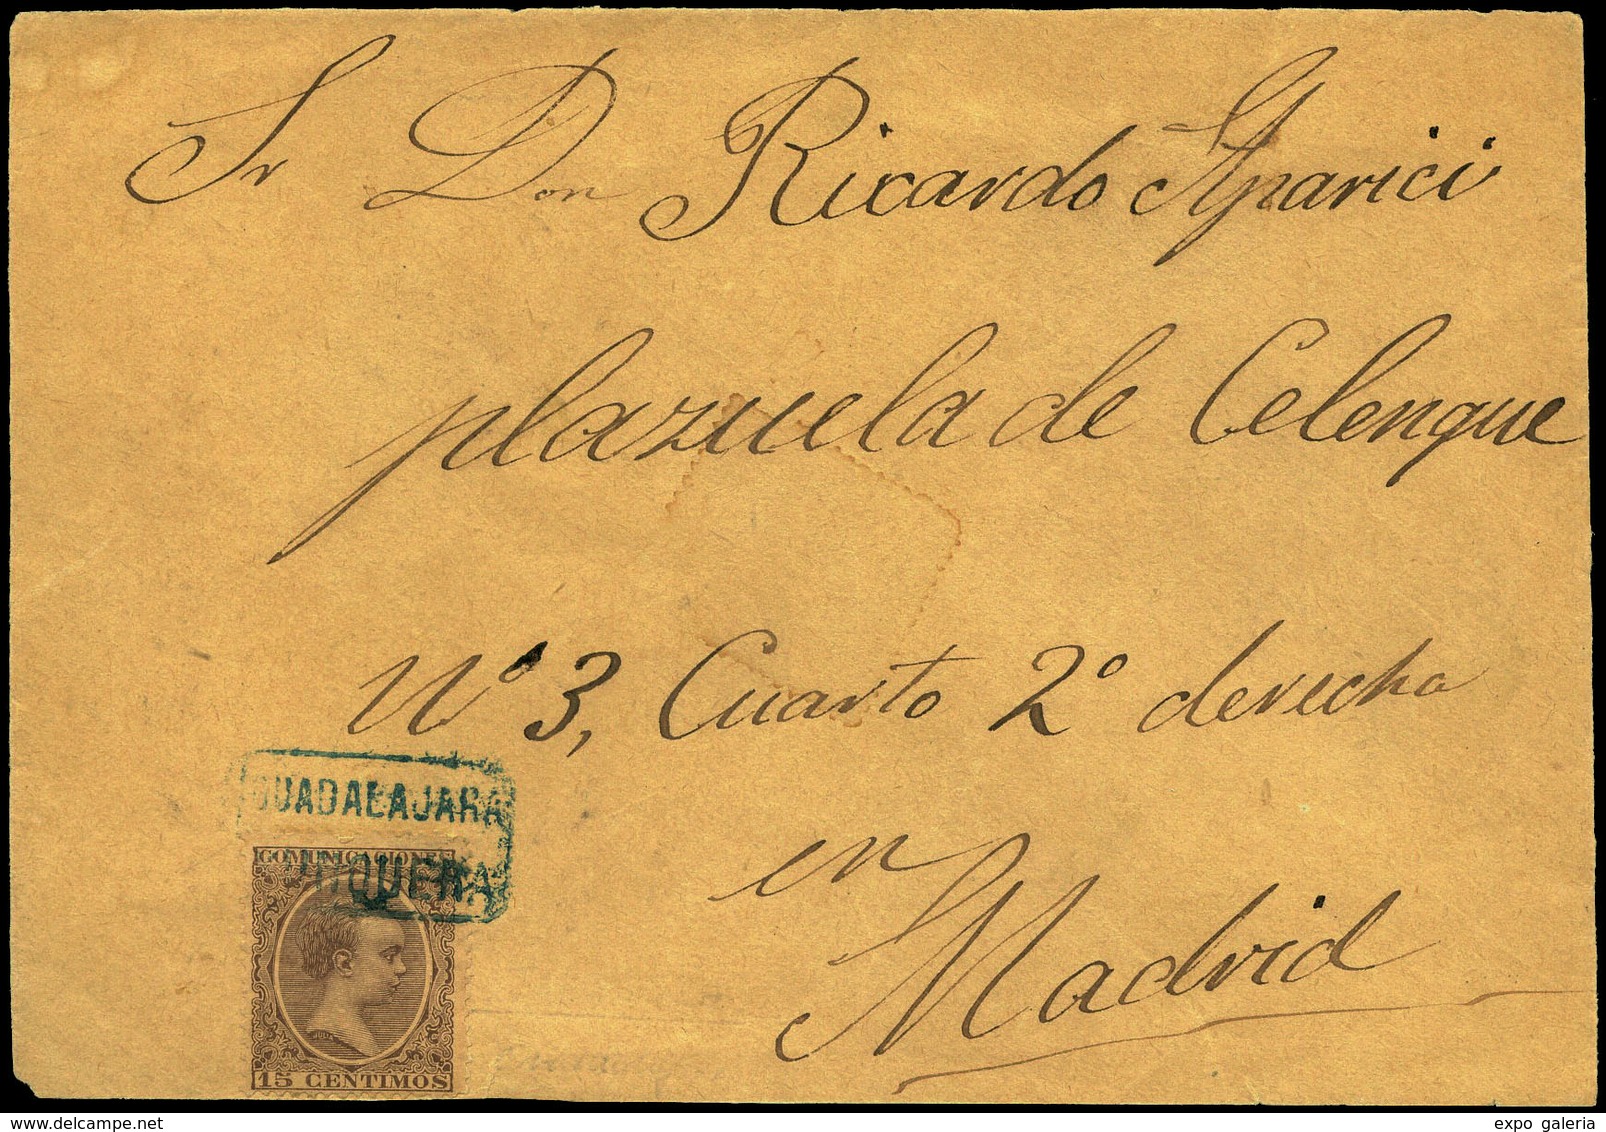 Sr Don Ricardo Aparici
plazuela de Celenque
Nº 3, Cuarto 2º derecha
en
Madrid
GUADALAJARA
JUNQUERA
COMUNICACIONES
JULIA
15 CENTIMOS
delcampe.net
expo galeria